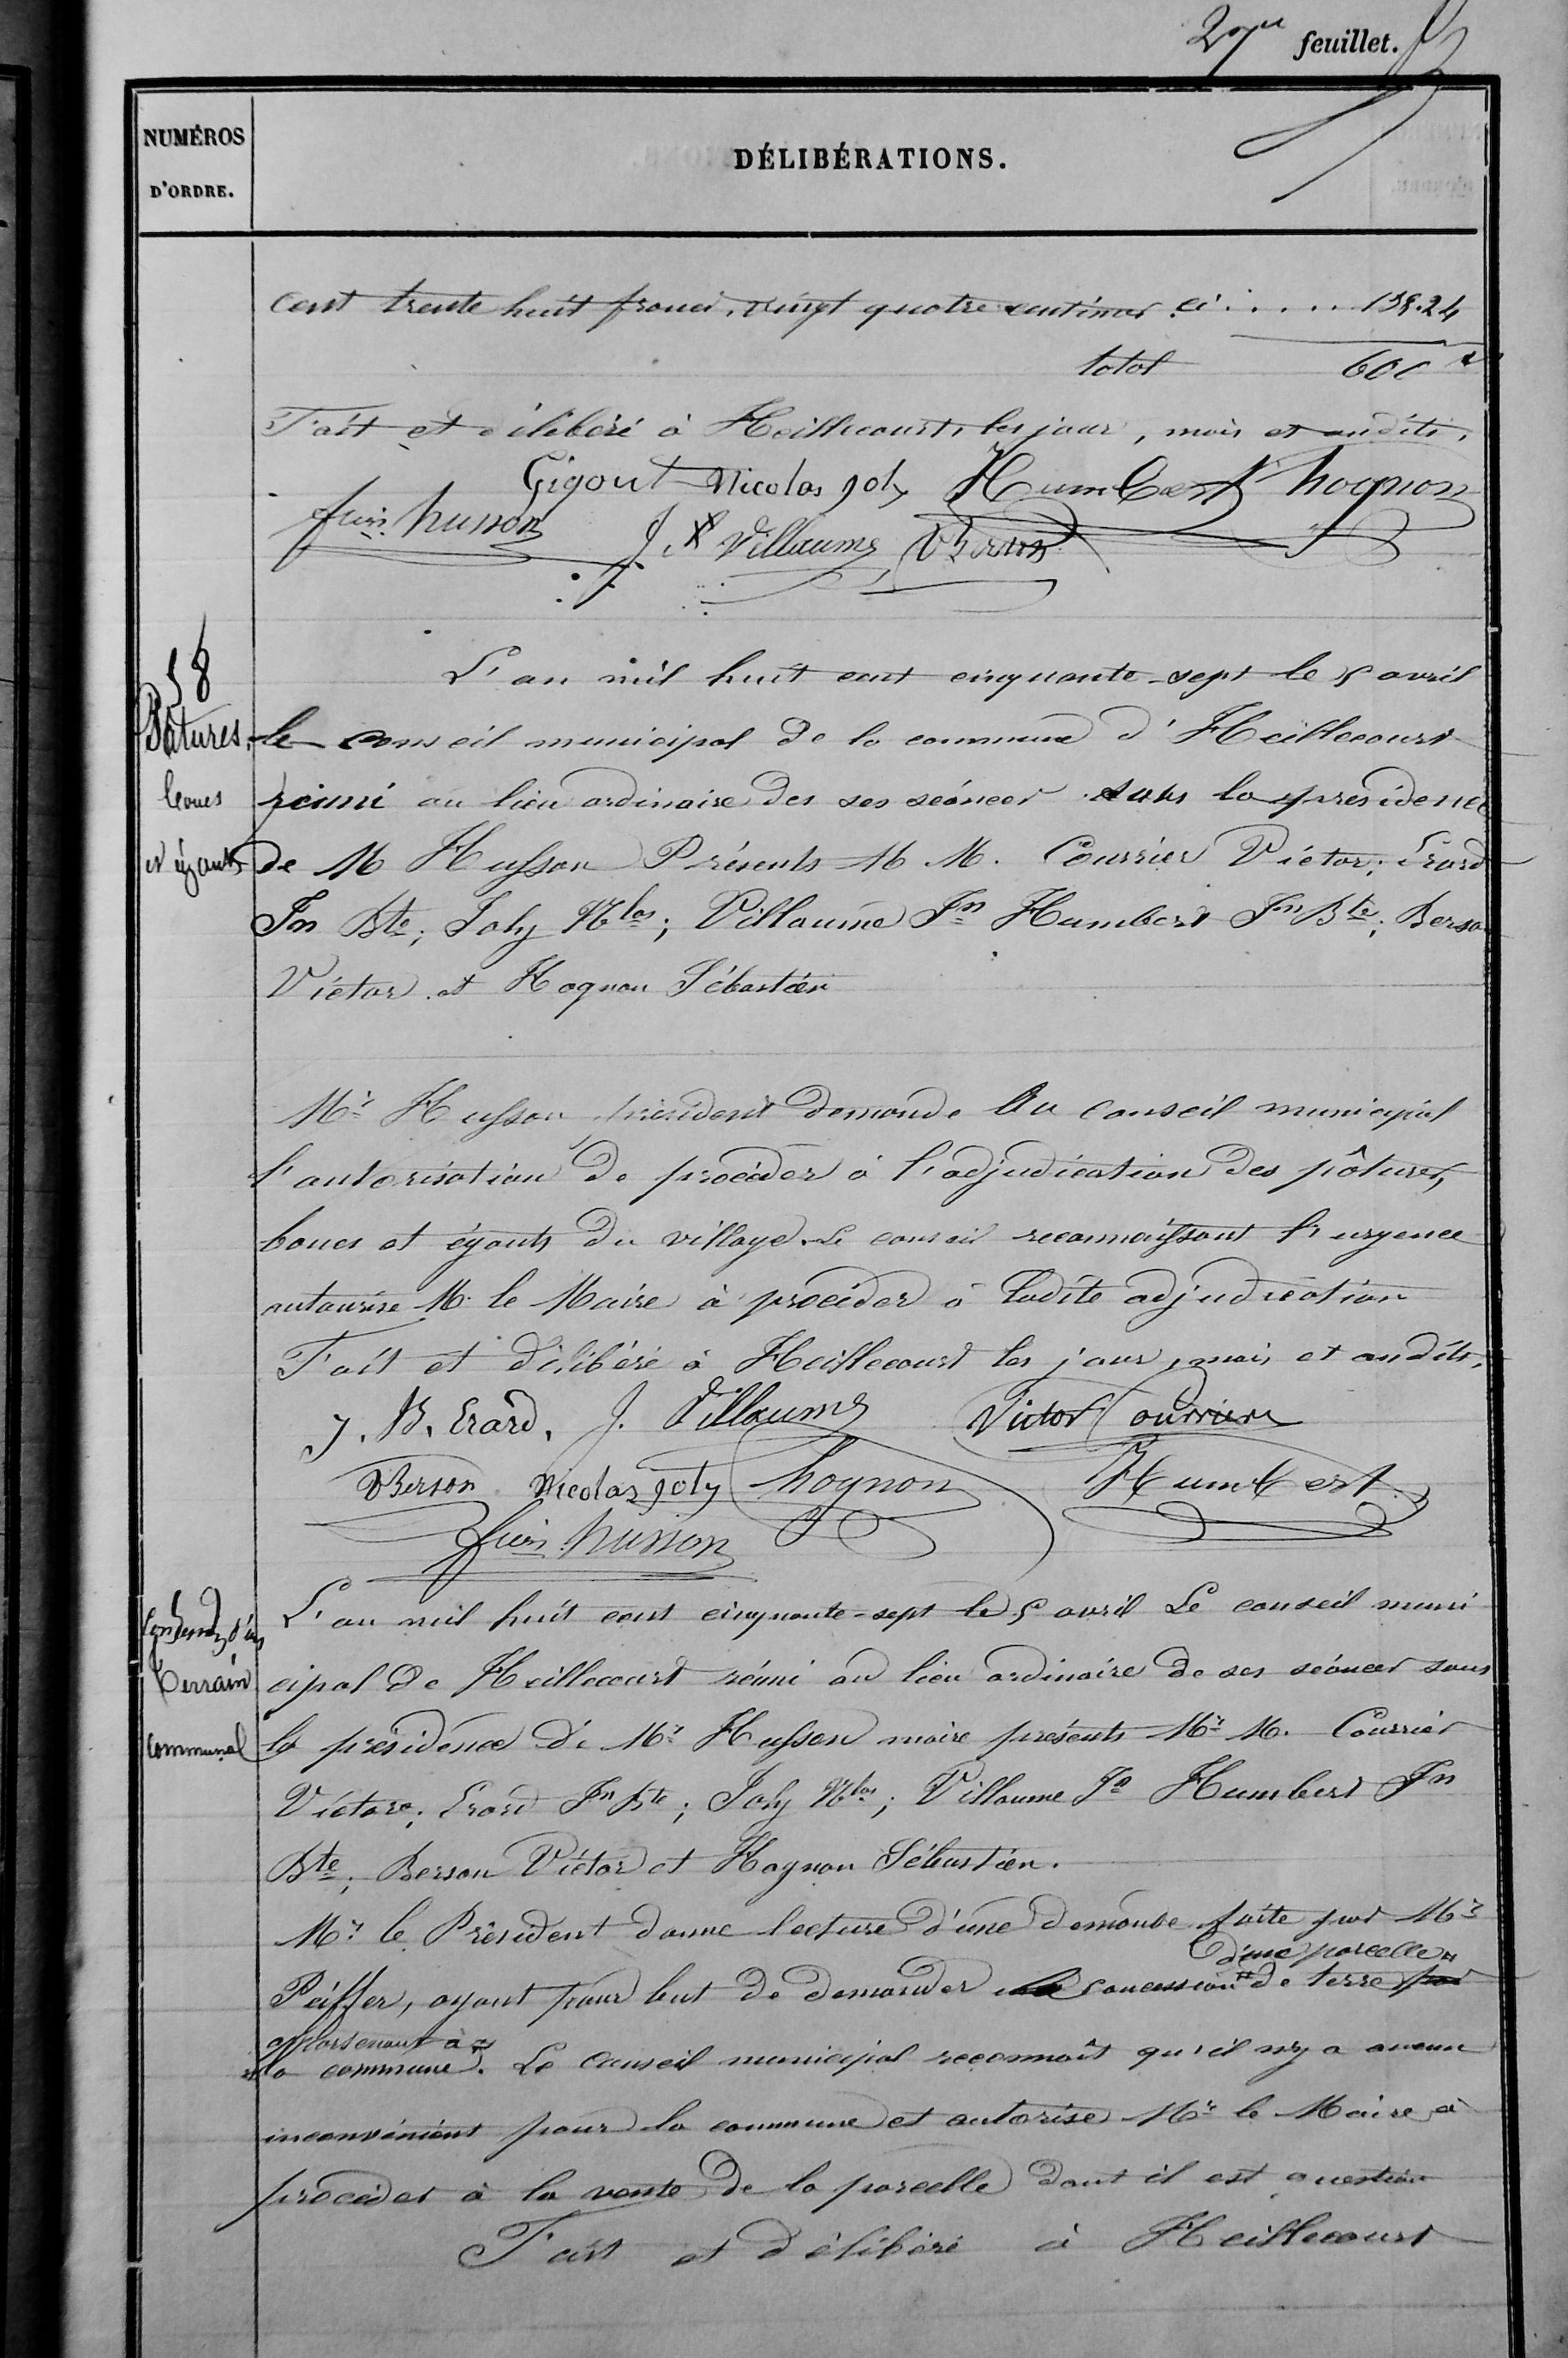 27me feuillet.
NUMÉROS
D'ORDRE.
DÉLIBÉRATIONS.
cent trente huit francs, vingt quatre centimes ci . . . . . 138.24
total 600
Fait et délibéré à Heillecourt, les jour, mois et an dits.
Gigout Nicolas joly Humbert hognon
husson J. Villaume VBerson
58
Pâtures,
boues
et égouts
L'an mil huit cent cinquante-sept le 5 avril
le conseil municipal de la commune d'Heillecourt
réuni au lieu ordinaire des ses séances sous la présidence
de M Husson Présents M M. Courrier Victor; Erard
Jn Bte; Joly Nlas; Villaume Jn Humbert Jn Bte; Berson
Victor et Hognon Sébastien
Mr Husson président demande Au conseil municipal
l'autorisation de procéder à l'adjudication des pâtures,
boues et égouts du village. Le conseil reconnaissant l'urgence
autaurise M. le Maire à procéder à ladite adjudication
Fait et délibéré à Heillecourt les jour, mois et an dits.
J. B. Erard. J. Villaume Victor Courrier
VBerson Nicolas joly hognon Humbert
husson
terrain
communal
L'an mil huit cent cinquante-sept le 5 avril Le conseil muni
cipal de Heillecourt réuni au lieu ordinaire de ses séances sous
la présidence de Mr Husson maire présents Mr M. Courrier
Victor; Erard Jn Bte; Joly Nlas; Villaume Jn Humbert Jn
Bte; Berson Victor et Hognon Sébastien.
Mr le Président donne lecture d'une demande faite par Mr
d'une parcelle
Peiffer, ayant pour but de demander la concession de terre par
appartenant à
la commune. Le Conseil municipal reconnaît qu'il n'y a aucun
inconvénient pour la commune et autorise Mr le Maire à
procéder à la vente de la parcelle dont il est question
Fait et délibéré à Heillecourt